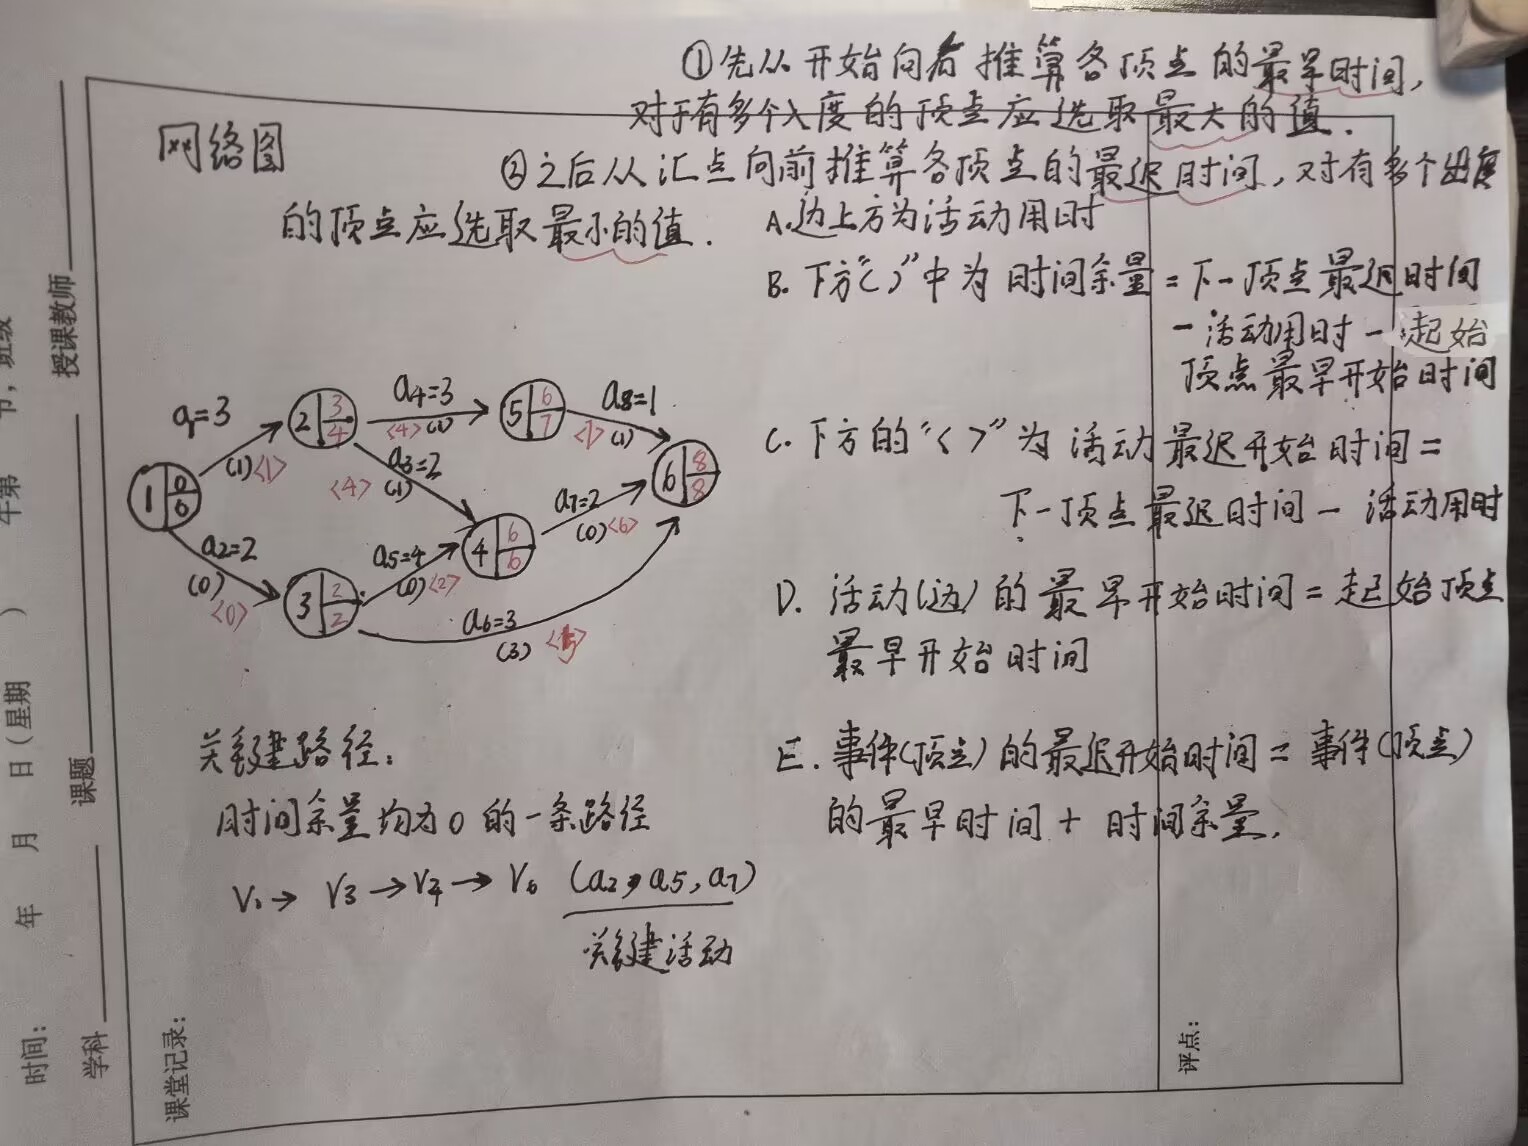 ①先从开始向后推算各顶点的最早时间,
对于有多个入度的顶点应选取最大的值.
网络图
②之后从汇点向前推算各顶点的最迟时间,对有多个出度
的顶点应选取最小的值.
A.边上方为活动用时
B.下方“( )”中为时间余量=下一顶点最迟时间
-活动用时-起始
顶点最早开始时间
C.下方的“< >”为活动最迟开始时间=
下一顶点最迟时间-活动用时
D.活动(边)的最早开始时间=起始顶点
最早开始时间
E.事件(顶点)的最迟开始时间=事件(顶点)
的最早时间+时间余量.
a1=3
(1)<1>
2 3 4
a4=3
<4>(1)
5 6 7
a8=1
<7>(1)
1 0 0
a3=2
<4>(1)
6 8 8
a2=2
(0)
<0>
a5=4
(0)<2>
4 6 6
a7=2
(0)<6>
3 2 2
a6=3
(3)
关键路径:
时间余量均为0的一条路径
V1→V3→V4→V6 (a2,a5,a7)
关键活动
时间:
年 月 日(星期 ) 午第 节,班级
学科
课题
授课教师
课堂记录:
评点: